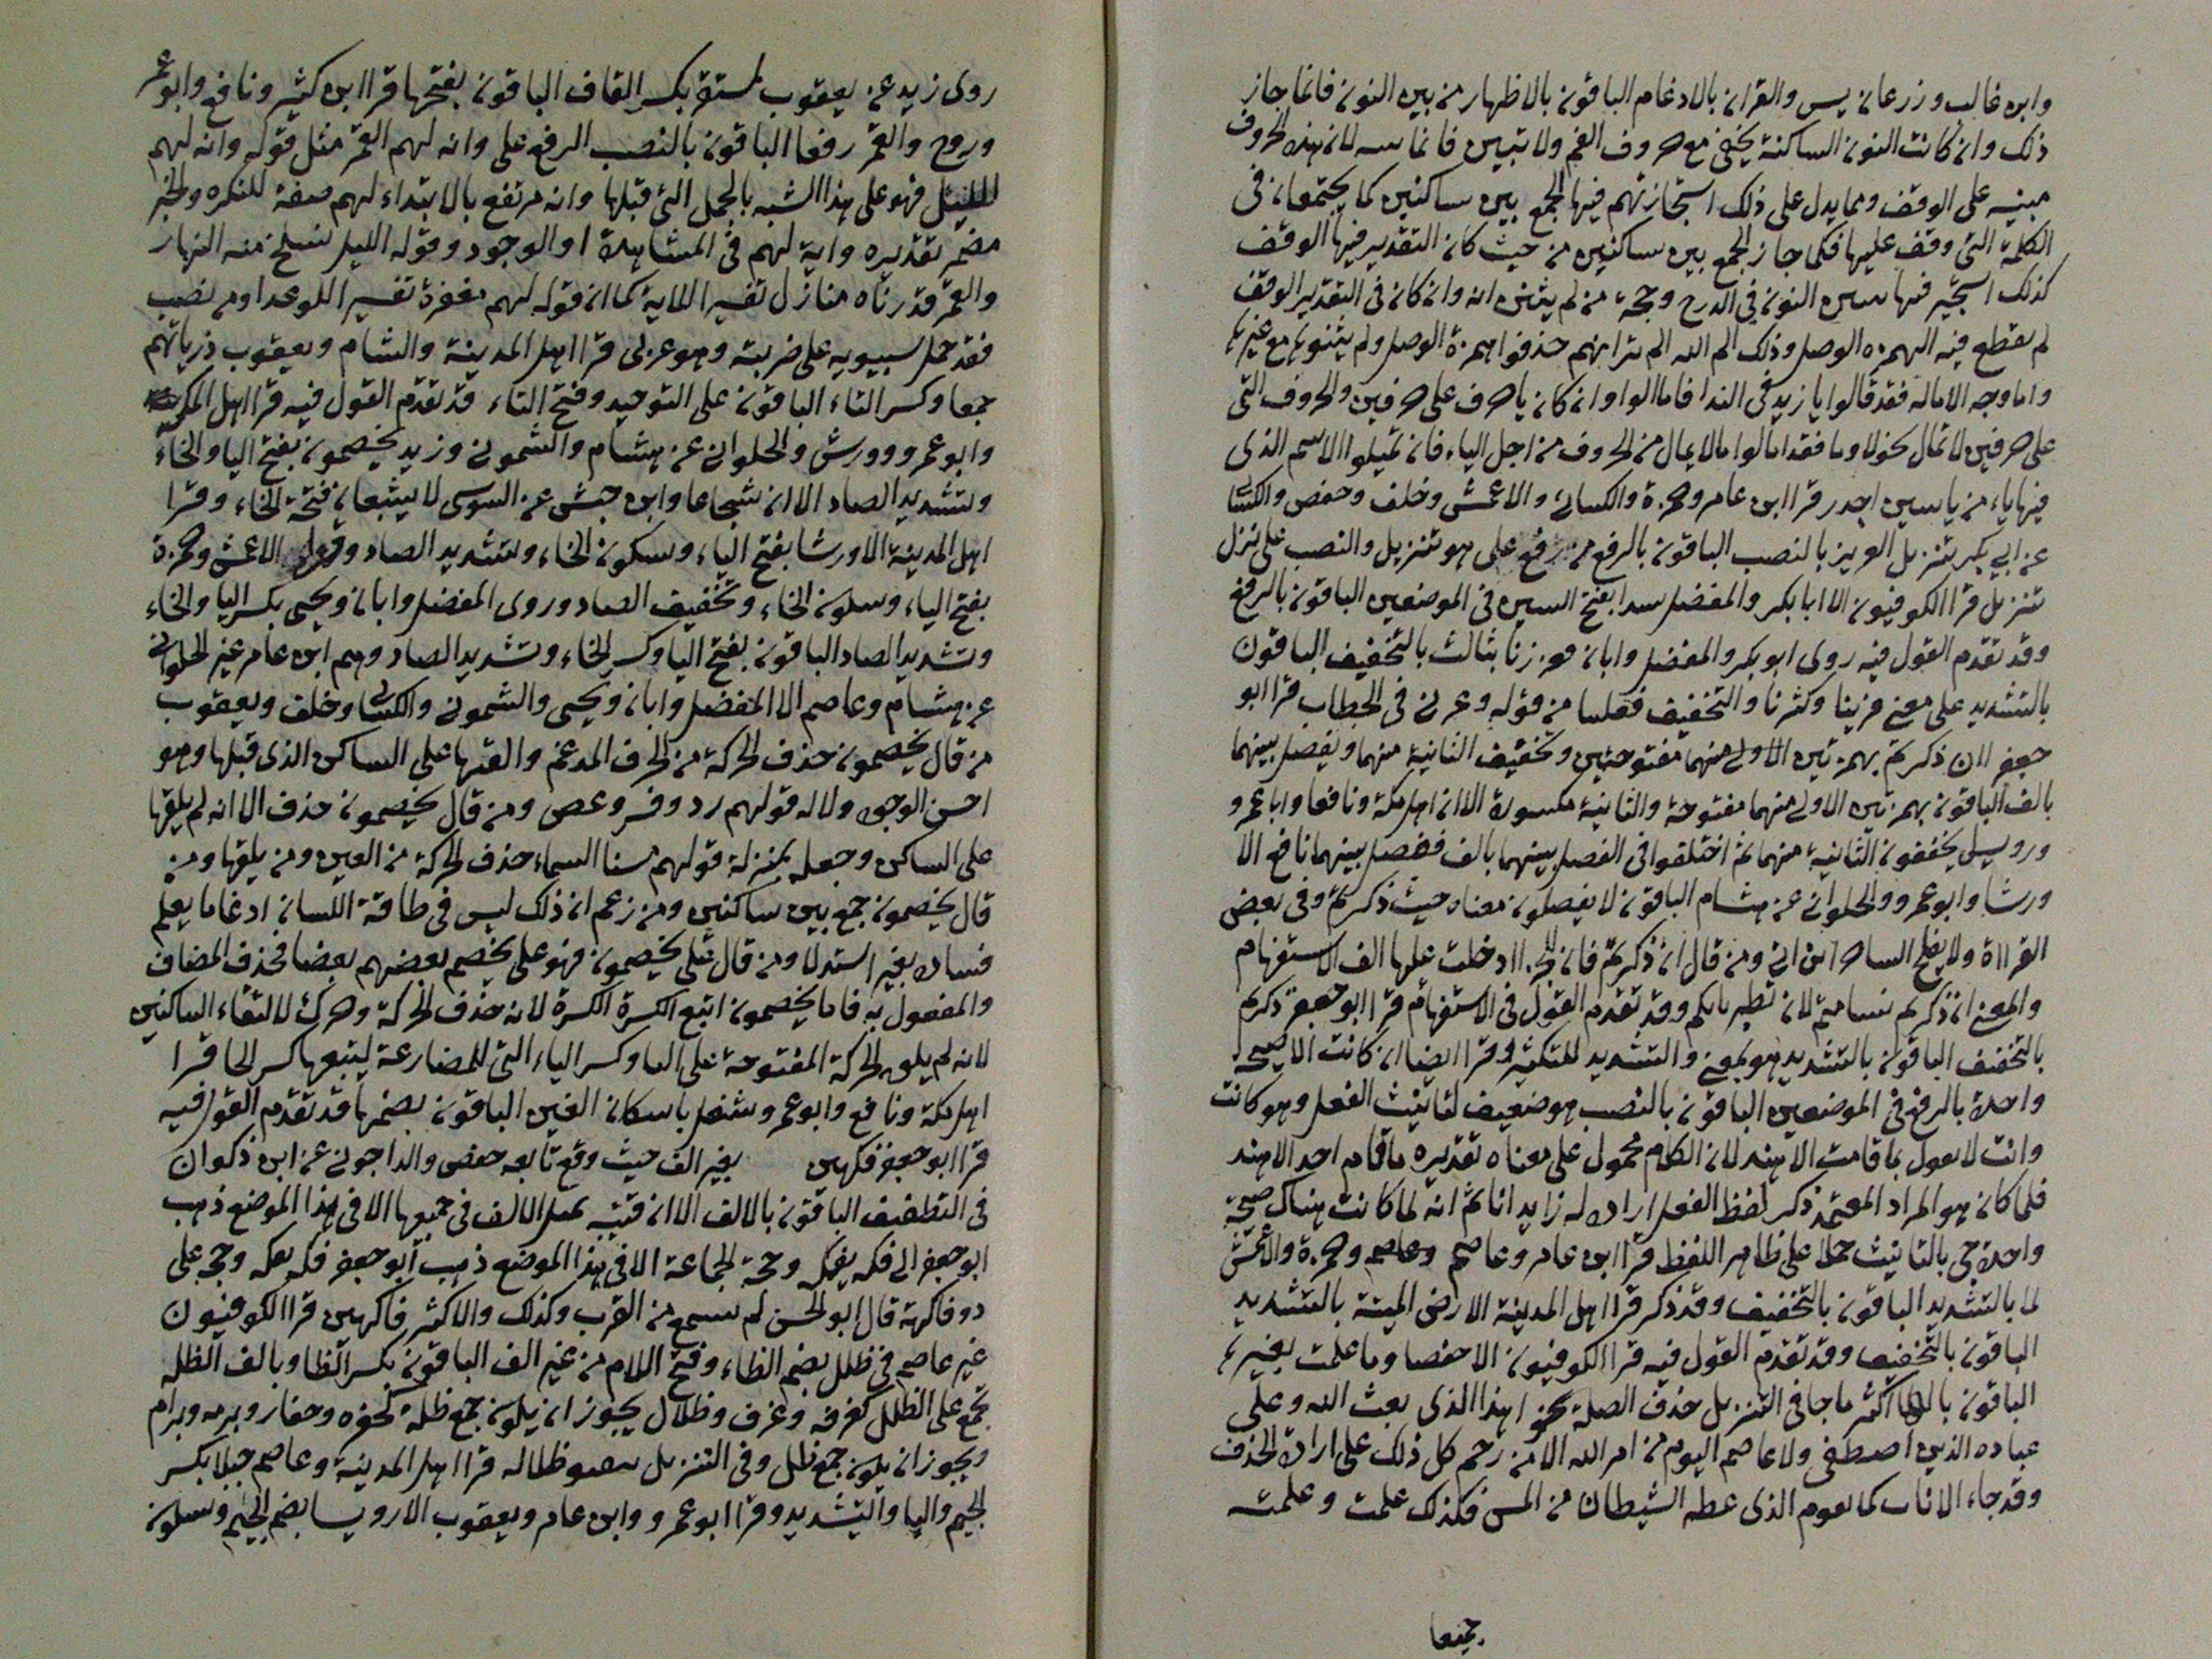 وابن غالب وزرعان يس والقران بالادغام الباقون بالاظهار من بين النون فانما جاز
ذلك وان كانت النون الساكنة يخفى مع حروف الفم ولا تبين فانما لان هذه الحروف
مبنيه على الوقف ومما يدل على ذلك استجازتهم فيها الجمع بين ساكنين كما يجتمعان في
الكلمة التي وقف عليها فكما جاز الجمع بين ساكنين من حيث كان التقدير فيها الوقف
كذلك استجيز فيها النون في الدرج وحجة من لم يتبين انه وان كان في التقدير الوقف
لم يقطع فيه الهمزه الوصل وذلك الم الله الم ترا انهم حذفوا همزة الوصل ولم يثبتوها مع غيرها
واما وجه الاماله فقد قالوا يا زيد في الندا فامالوا وان كان يا حرف على حرفين والحروف التي
على حرفين لا تمال نحو لا وما فقد امالوا ما لا يمال من الحروف من اجل الياء فان تميلوا الاسم الذي
فيها ياء من ياسين اجدر قرا ابن عامر وحمزة والكسائي والاعمش وخلف وحفص والكسائي
عن ابي بكر تنزيل العزيز بالنصب الباقون بالرفع من رفع على هو تنزيل والنصب على نزل
تنزيل قرا الكوفيون الا ابا بكر والمفضل سدا بفتح السين في الموضعين الباقون بالرفع
وقد تقدم القول فيه روى ابو بكر والمفضل وابان فعززنا بثالث بالتخفيف الباقون
بالتشديد على معنى فزينا وكثرنا والتخفيف فغلبنا من قوله وعزني في الخطاب قرا ابو
جعفر اان ذكرتم بهمزتين الاولى منهما مفتوحتين وتخفيف الثانية منهما ويفصل بينهما
بالف الباقون بهمزتين الاولى منهما مفتوحة والثانية مكسورة الا ان اهل مكة ونافعا وابا عمرو
ورويس يخففون الثانية منهما ثم اختلفوا في الفصل بينهما بالف ففصل بينهما نافع الا
ورشا وابو عمرو والحلواني عن هشام الباقون لا يفصلون معناه حيث ذكرتم وفي بعض
القراة ولا يفلح الساحر اين اتى ومن قال ائن ذكرتم فان ادخلت عليها الف الاستفهام
والمعنى ائن ذكرتم تسامتم لان تطير بابكم وقد تقدم القول في الاستفهام قرا ابو جعفر ذكرتم
بالتخفيف الباقون بالتشديد هو بمعنى والتشديد للتكثير وقرا ايضا ان كانت الا صيحة
واحدة بالرفع في الموضعين الباقون بالنصب هو ضعيف لتانيث الفعل وهو كانت
وانت لا تعول ما قامت الا هند لان الكلام محمول على معناه تقديره ما قام احد الا هند
فلما كان هو المراد المعتمد ذكر لفظ الفعل اراده له زايد انا ثم انه لما كانت هناك صيحة
واحدة جى بالتانيث حملا على ظاهر اللفظ قرا ابن عامر وعاصم وعاصم وحمزة والاعمش
لما بالتشديد الباقون بالتخفيف وقد ذكر قرا اهل المدينة الارض الميتة بالتشديد
الباقون بالتخفيف وقد تقدم القول فيه قرا الكوفيون الا حفصا وما علمت بغير ها
الباقون اكثر ما جا في التنزيل حذف الصلة نحو اهذا الذي بعث الله وعلى
عباده الذين اصطفى ولا عاصم اليوم من امر الله الا من رحم كل ذلك على ارادة الحذف
وقد جاء الاثبات كما يقوم الذي الشيطان من المس فكذلك علمت وعلمته
جميعا
روى زيد عن يعقوب لمستقر بكسر القاف الباقون بفتحها قرا ابن كثير ونافع وابو عمرو
وروح والقمر رفعا الباقون بالنصب الرفع على وانه لهم القمر مثل قوله وانه لهم
الليل فهو على هذا الشبه بالجمل التي قبلها وانه مرتفع بالابتداء لهم صفة للنكره والخبر
مضمر تقديره واية لهم في المشاهدة او الوجود وقوله الليل نسلخ منه النهار
والقمر قدرناه منازل تفسير اللاية كما ان قوله لهم مغفرة تفسير اللوعد ومن نصب
فقد حمل سيبويه على ضربته وهو عربي قرا اهل المدينة والشام ويعقوب ذرياتهم
جمعا وكسر التاء الباقون على التوحيد وفتح التاء قد تقدم القول فيه قرا اهل المكه
وابو عمرو وورش والحلواني عن هشام والشموني وزيد يخصمون بفتح اليا والخاء
وتشديد الصاد الا ان شجاعا وابن حبش عن السوسي لا يشبعان فتحة الخاء وقرا
اهل المدينة الا ورشا بفتح الياء وسكون الخاء وتشديد الصاد وقرا الاعمش وحمزة
بفتح الياء وسكون الخاء وتخفيف الصاد وروى المفضل وابان ويحيى بكسر اليا والخاء
وتشديد الصاد الباقون بفتح اليا وكسر الخاء وتشديد الصاد وهم ابن عامر غير الحلواني
عن هشام وعاصم الا المفضل وابان ويحيى والشموني والكسائي وخلف ويعقوب
من قال يخصمون حذف الحركة من الحرف المدغم والقيها على الساكن الذي قبلها وهو
احسن الوجوه ولاله قولهم رد وفر وعض ومن قال يخصمون حذف الا انه لم يلقها
على الساكن وجعله بمنزلة قولهم مسنا السماء حذف الحركة من العين ومن يلقها ومن
قال يخصمون جمع بين ساكنين ومن زعم ان ذلك ليس في طاقة اللسان ادغاما يعلم
فساده بغير استدلا ومن قال على يخصمون فهو على يخصم بعضهم بعضا فحذف المضاف
والمفعول به فاما يخصمون اتبع الكسرة الكسرة لانه حذف الحركة وحرك لالتقاء الساكنين
لانه لم يلق الحركة المفتوحة على الفا وكسر الياء التي للمضارعة ليتبعها كسر الخا قرا
اهل مكة ونافع وابو عمرو شغل باسكان الغين الباقون بضمها قد تقدم القول فيه
قرا ابو جعفر فكهين بغير الف حيث وقع تابعه حفص والداجوني عن ابن ذكوان
في التطفيف الباقون بالالف الا ان قتيبه يميل الالف في جميعها الا في هذا الموضع ذهب
ابو جعفر الى فكه يفكه وحجة الجماعة الا في هذا الموضع ذهب ابو جعفر فكه يفكه وحجه على
ذو فاكهة قال ابو الحسن لم يسمع من العرب وكذلك والاكثر فاكهين قرا الكوفيون
غير عاصم في ظلل بضم الظاء وفتح اللام من غير الف الباقون بكسر الظا وبالف الظله
تجمع على الظلل كغرفه وغرف وظلال يجوز ان يكون جمع ظلة كحفره وحفار وبرمه وبرام
ويجوز ان يكون جمع ظل وفي التنزيل ظلاله قرا اهل المدينة وعاصم جبلا بكسر
الجيم واليا والتشديد وقرا ابو عمرو وابن عامر ويعقوب الا رويسا بضم الجيم وسكون